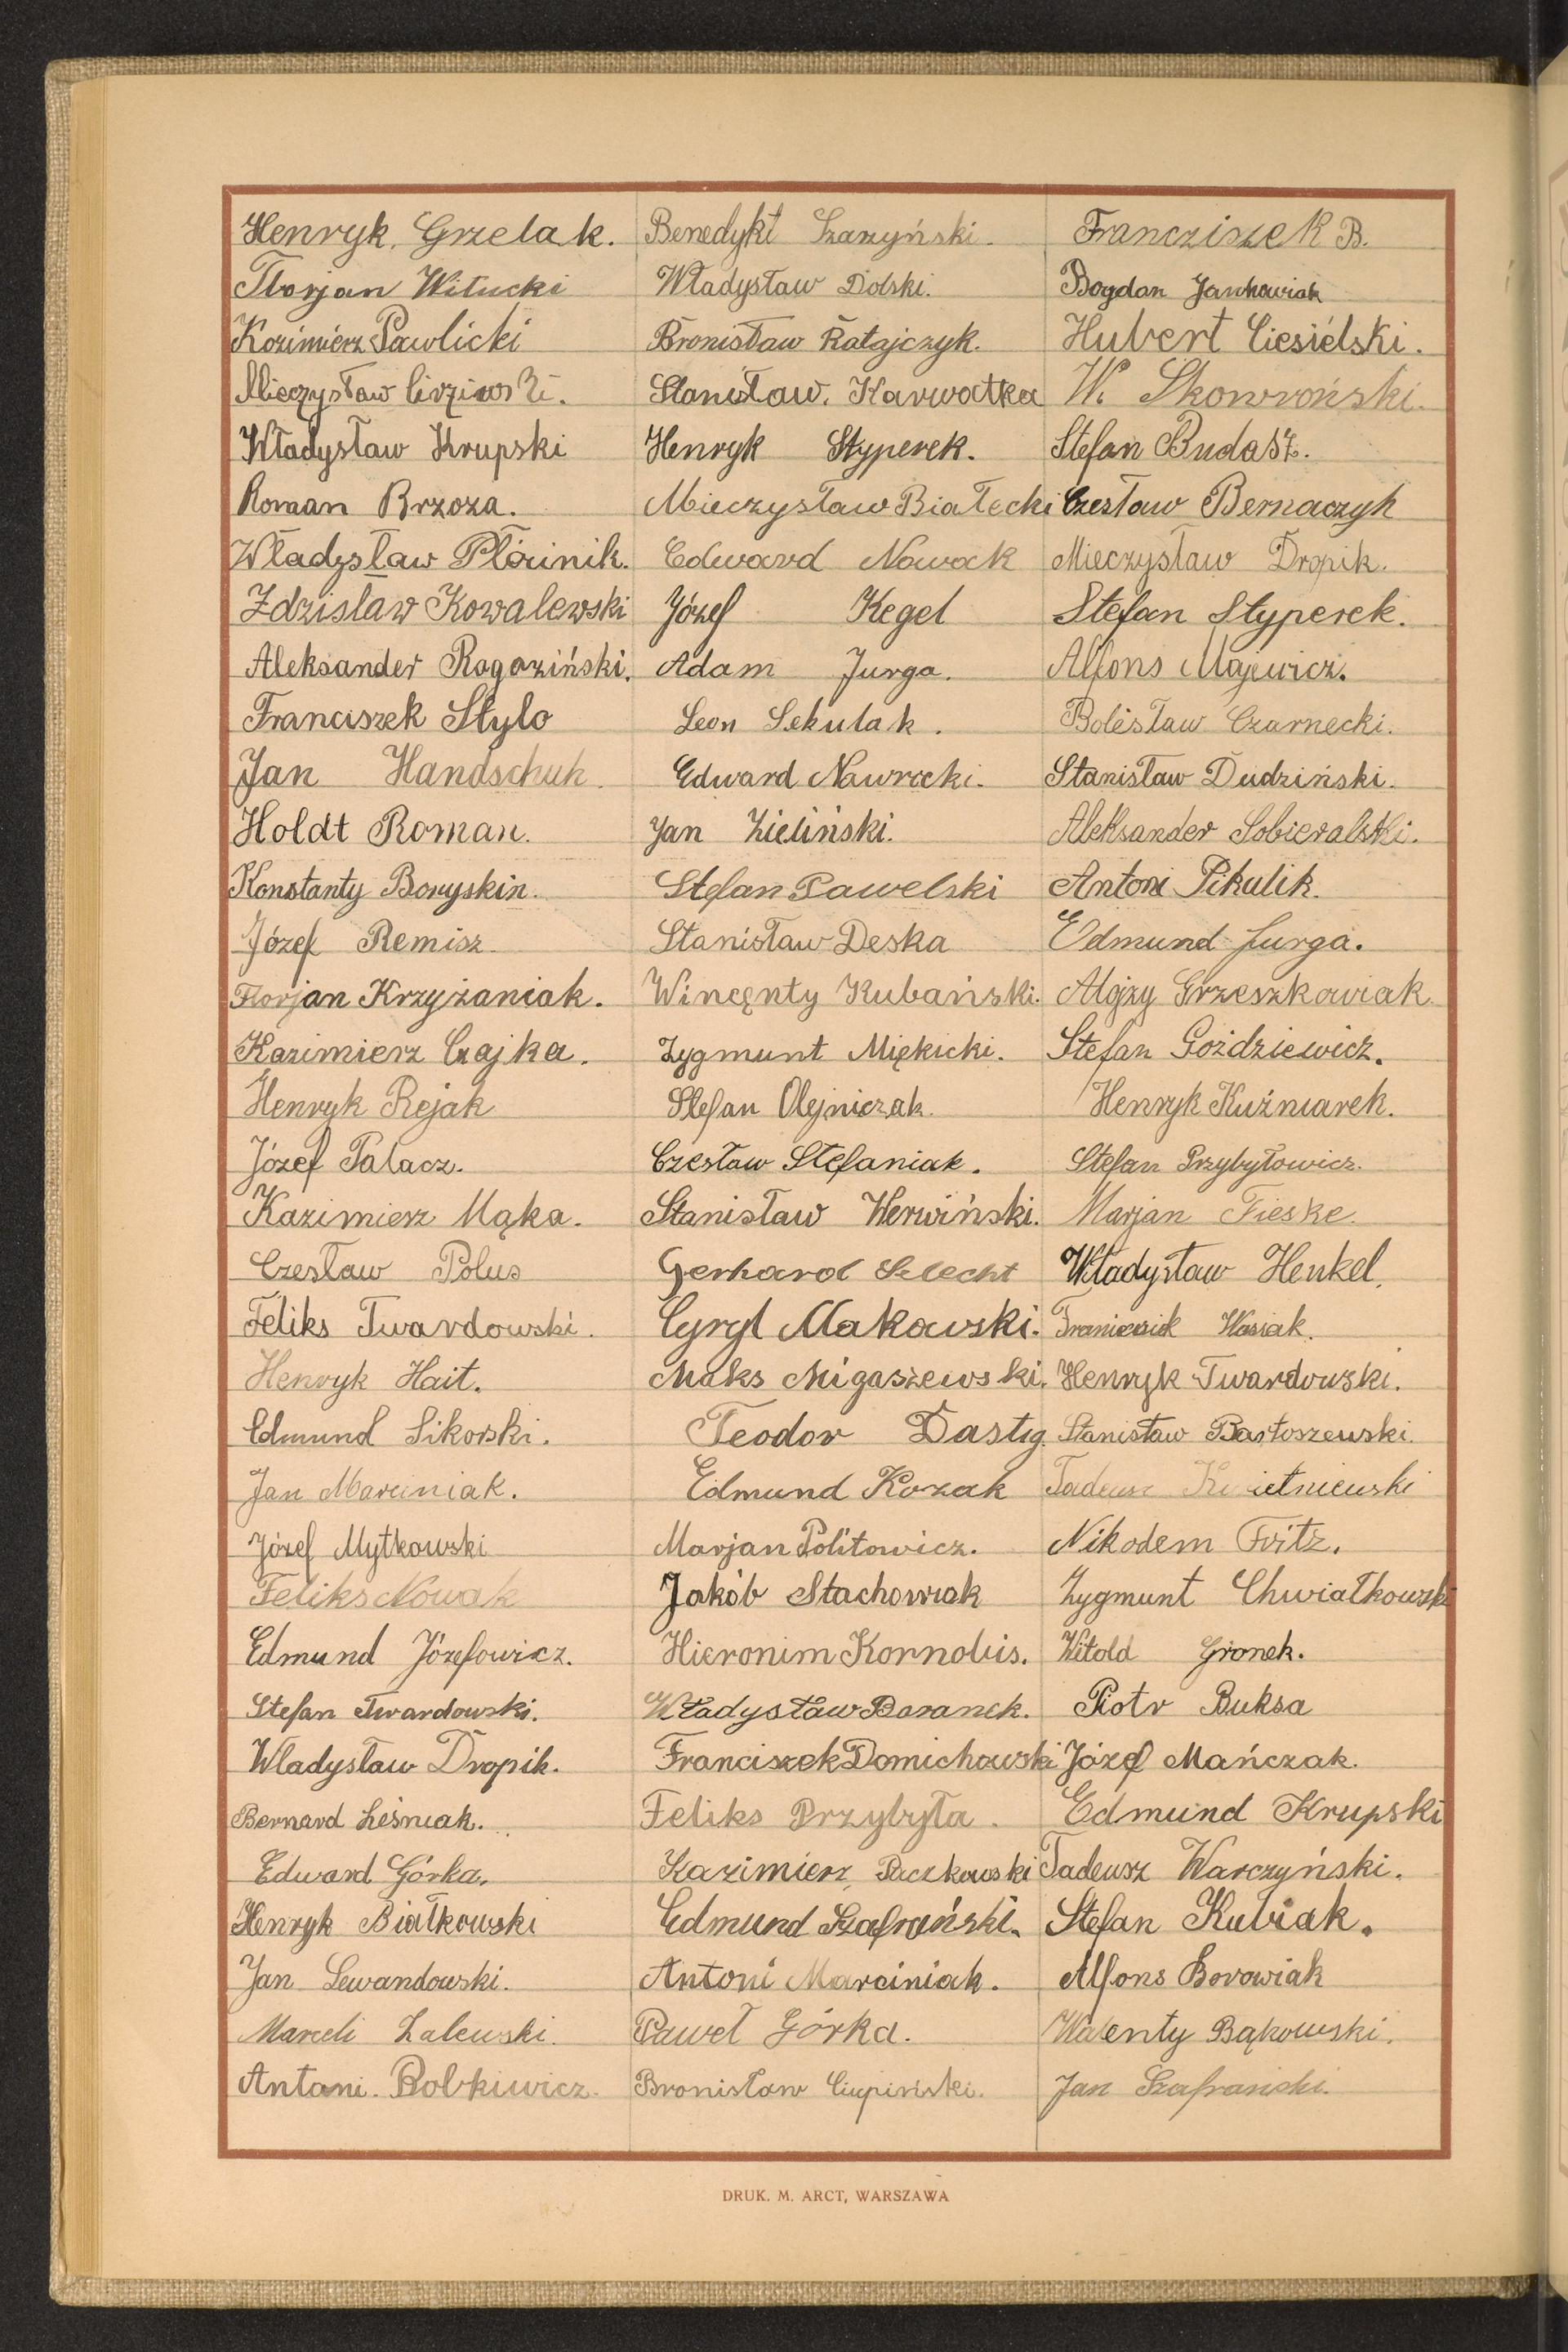 Henryk. Grzelak. Benedykt Szaszyński. Franciszek B.
Florjan Witucki Władysław Dolski. Bogdan Jankowiak
Kazimierz Pawlicki Bronisław Ratajczyk. Hubert Ciesiélski.
Mieczysław Stanisław. Karwatka W. Skowroński.
Władysław Krupski Henryk Styperek. Stefan Budasz.
Roman Brzoza. Mieczysław Białecki Czesław Bernaczyk
Władysław Płócinik. Edward Nowack Mieczysław Dropik.
Zdzisław Kowalewski Józef Kegel Stefan Styperek.
Aleksander Rogoziński. Adam Jurga. Alfons Majewicz.
Franciszek Stylo Leon Sekulak. Bolesław Czarnecki.
Jan Handschuh. Edward Nawrocki. Stanisław Dudziński.
Holdt Roman. Jan Zieliński. Aleksander Sobieralski.
Konstanty Boryskin. Stefan Pawelski Antoni Pikulik.
Józef Remisz Stanisław Deska Edmund Jurga.
Florjan Krzyżaniak. Wincenty Kubański. Alojzy Grzeszkowiak
Kazimierz Czajka. Zygmunt Miękicki. Stefan Goździewicz.
Henryk Rejak Stefan Olejniczak. Henryk Kuźniarek.
Józef Pałacz. Czesław Stefaniak. Stefan Przybyłowicz.
Kazimierz Mąka. Stanisław Werwiński. Marjan Fieske.
Czesław Polus Gerhard Szlecht Władysław Henkel.
Feliks Twardowski. Cyryl Makowski. Wasiak.
Henryk Hait. Maks Migaszewski. Henryk Twardowski.
Edmund Sikorski. Teodor Dastig. Stanisław Bartoszewski.
Jan Marciniak. Edmund Kozak Tadeusz Kwietniewski
Józef Mytkowski Marjan Politowicz. Nikodem Fritz.
Feliks Nowak Jakób Stachowiak Zygmunt Chwiałkowski
Edmund Józefowicz. Hieronim Kornobis. Witold Gronek.
Stefan Twardowski. Władysław Baranek. Piotr Buksa
Władysław Dropik. Franciszek Domichowski Józef Mańczak.
Bernard Leśniak. Feliks Przybyła. Edmund Krupski
Edward Górka. Kazimierz Paczkowski Tadeusz Warczyński.
Henryk Białkowski Edmund Szafrański. Stefan Kubiak.
Jan Lewandowski. Antoni Marciniak. Alfons Borowiak
Marceli Zalewski. Paweł Górka. Walenty Bąkowski.
Antoni. Bobkiwicz. Bronisław Ciupiński. Jan Szafrański.
DRUK. M. ARCT, WARSZAWA